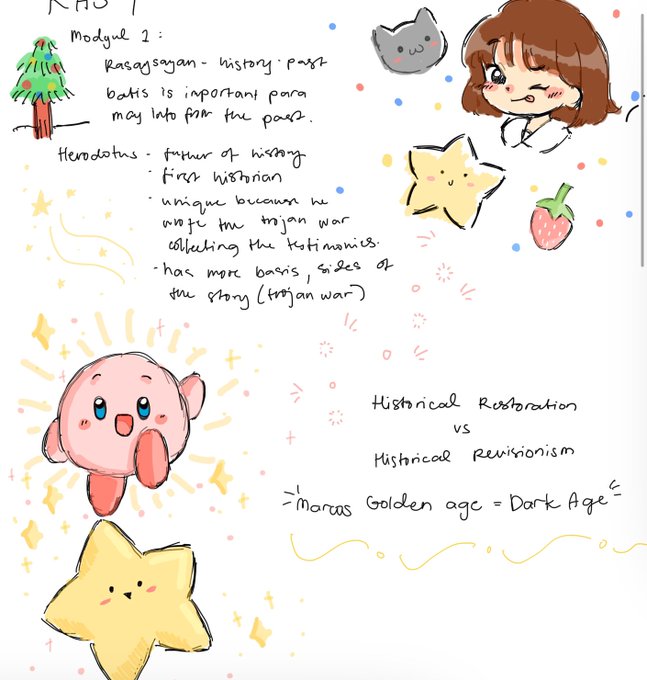 KAS 1
Modyul 1 :
Kasaysayan - history · past
batis is important para
may info from the past.
Herodotus - father of history
· first historian
· unique because he
wrote the trojan war
collecting the testimonies.
· has more basis, sides of
the story (trojan war)
Historical Restoration
vs
Historical Revisionism
Marcos Golden age = Dark Age